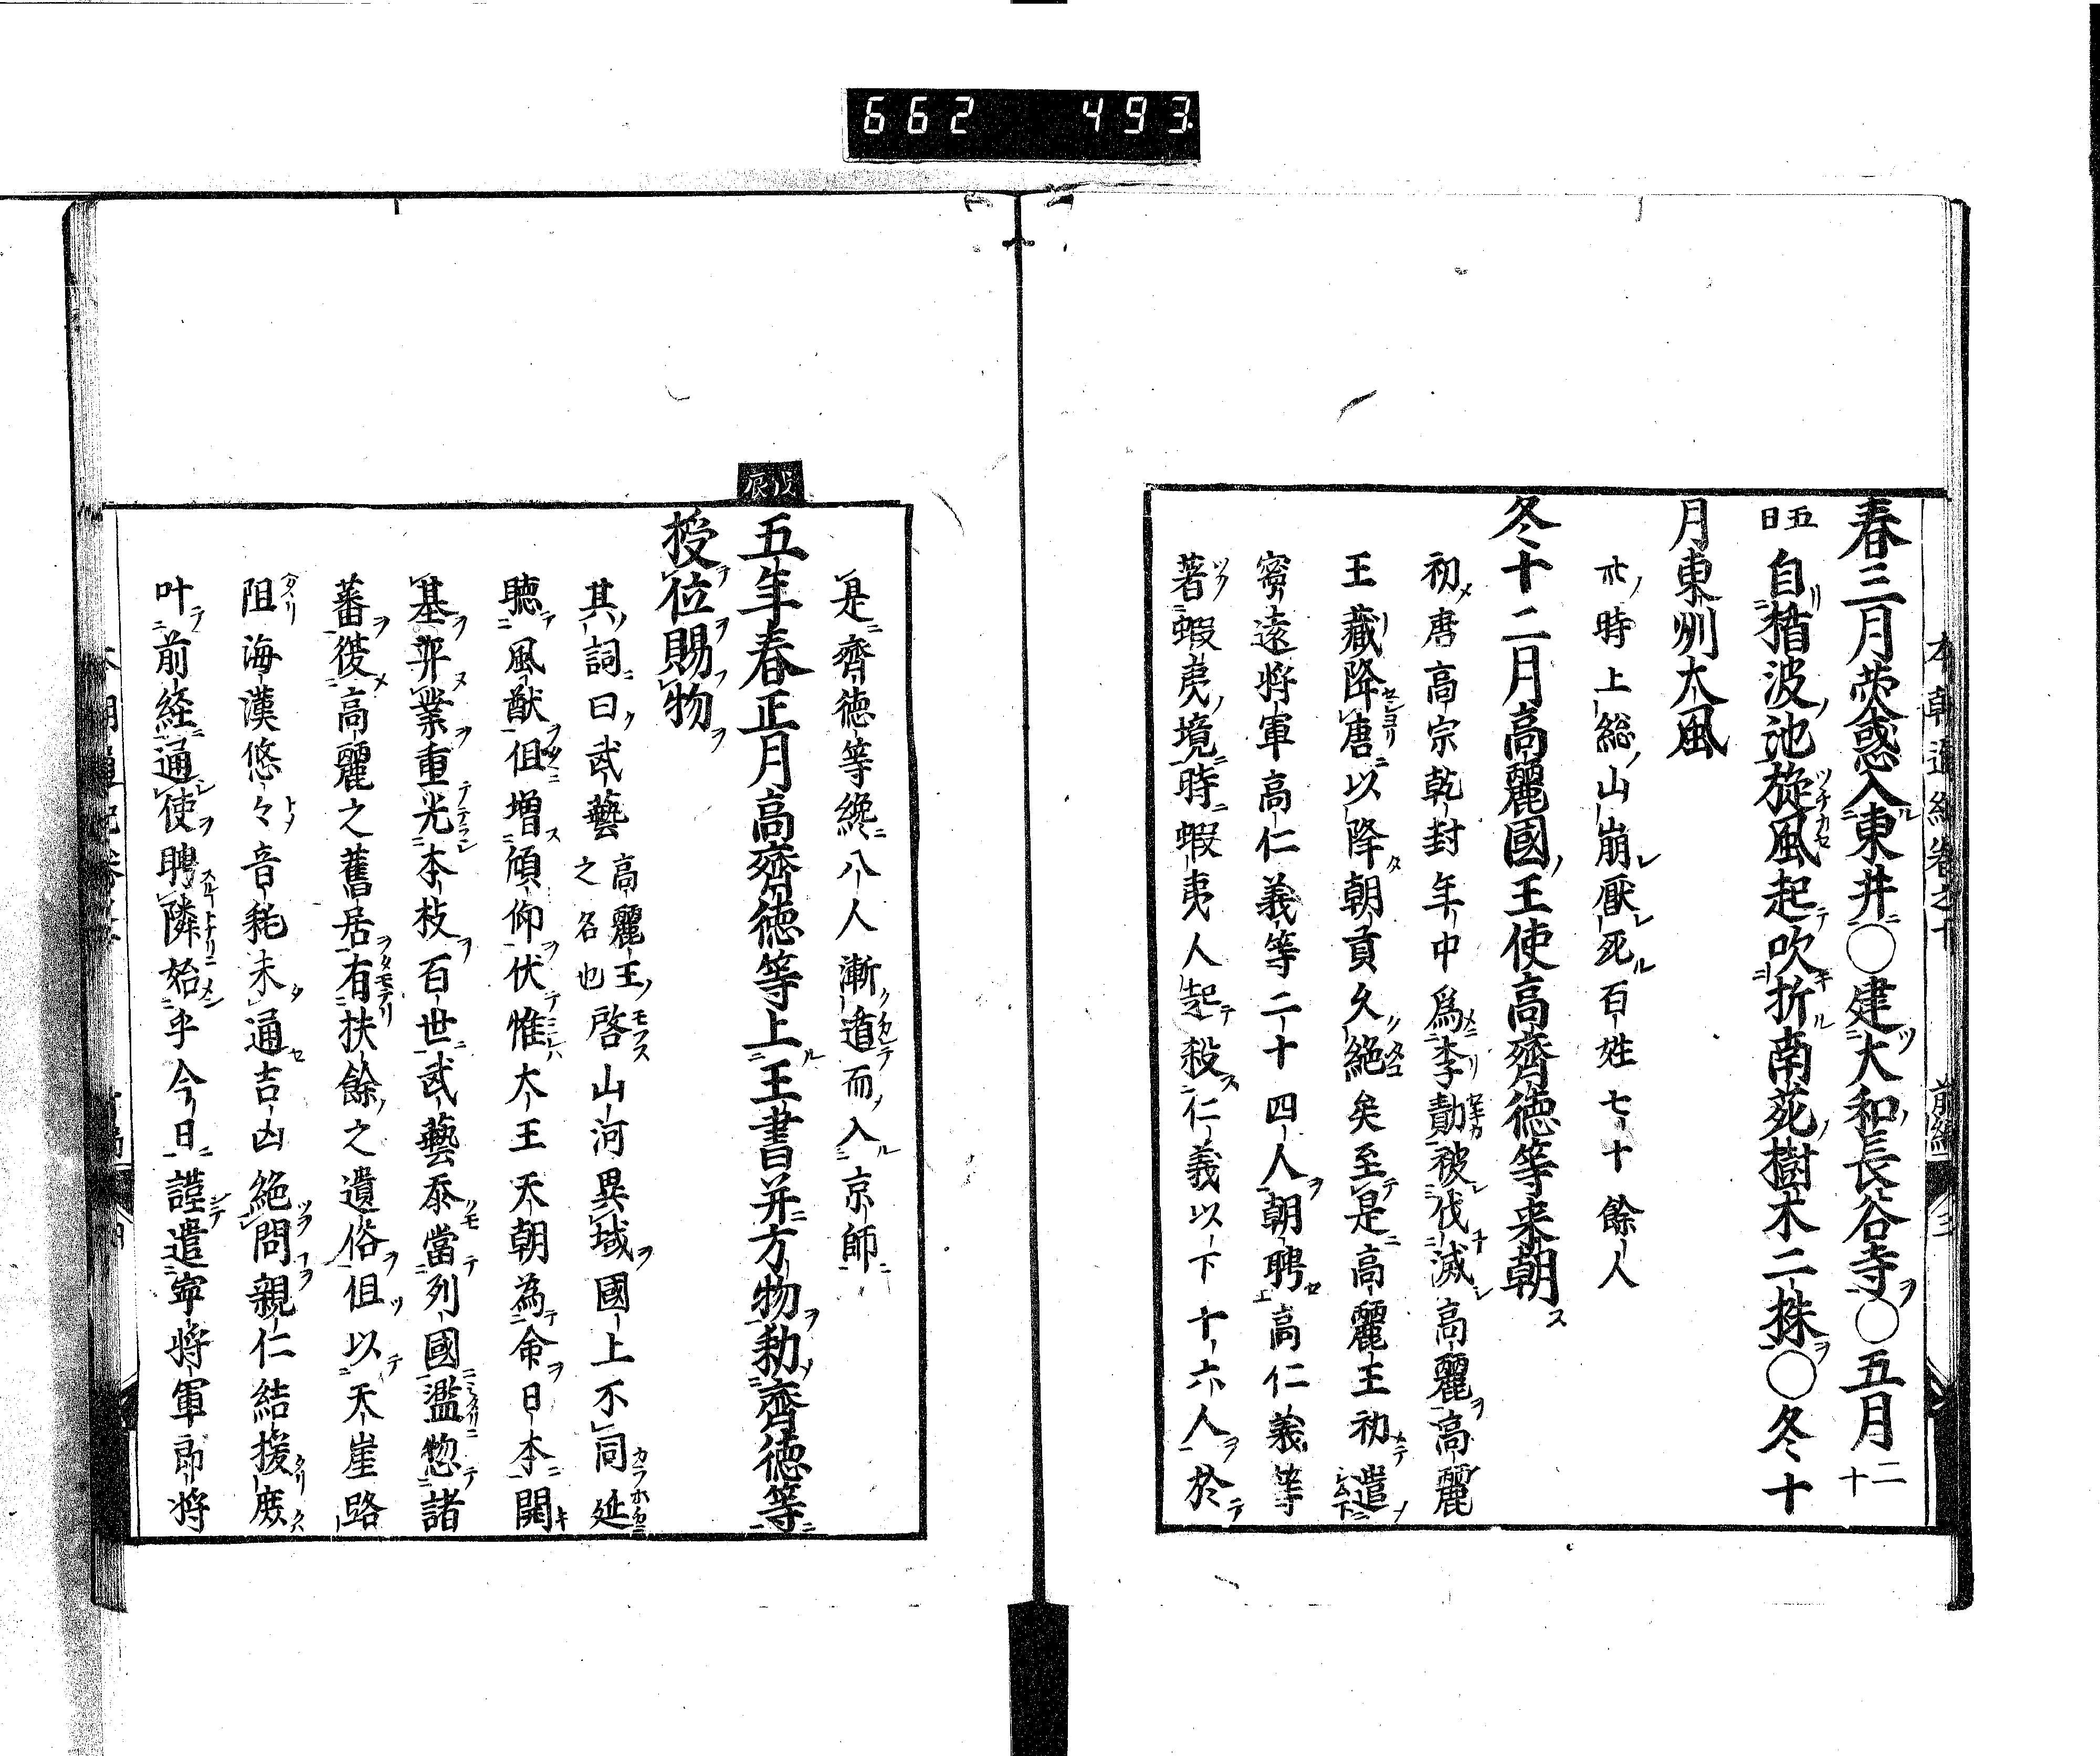 662 493
本朝通紀卷之十 前編 三
春三月熒惑入東井○建大和長谷寺○五月二十
五日自猪波池旋風起吹折南苑樹木二株○冬十
月東州大風
此時上総山崩厭死百姓七十餘人
冬十二月高麗國王使高齊徳等来朝
初唐高宗乾封年中爲李勣被伐滅高麗高麗
王藏降唐以降朝貢久絶矣至是高麗王初遣
寧遠将軍高仁義等二十四人朝聘高仁義等
著蝦夷境時蝦夷人起殺仁義以下十六人於
是齊徳等纔八人漸遁而入京師
戊辰
五年春正月高齊徳等上王書并方物勅齊徳等
授位賜物
其詞曰武藝高麗王之名也啓山河異域國上不同延
聴風猷但増傾仰伏惟大王天朝為命日本開
基弈業重光本枝百世武藝忝當列國濫惣諸
蕃復高麗之舊居有扶餘之遺俗但以天崖路
阻海漢悠々音耗未通吉凶絶問親仁結援庶
叶前経通使聘隣始乎今日謹遣寧将軍郎将